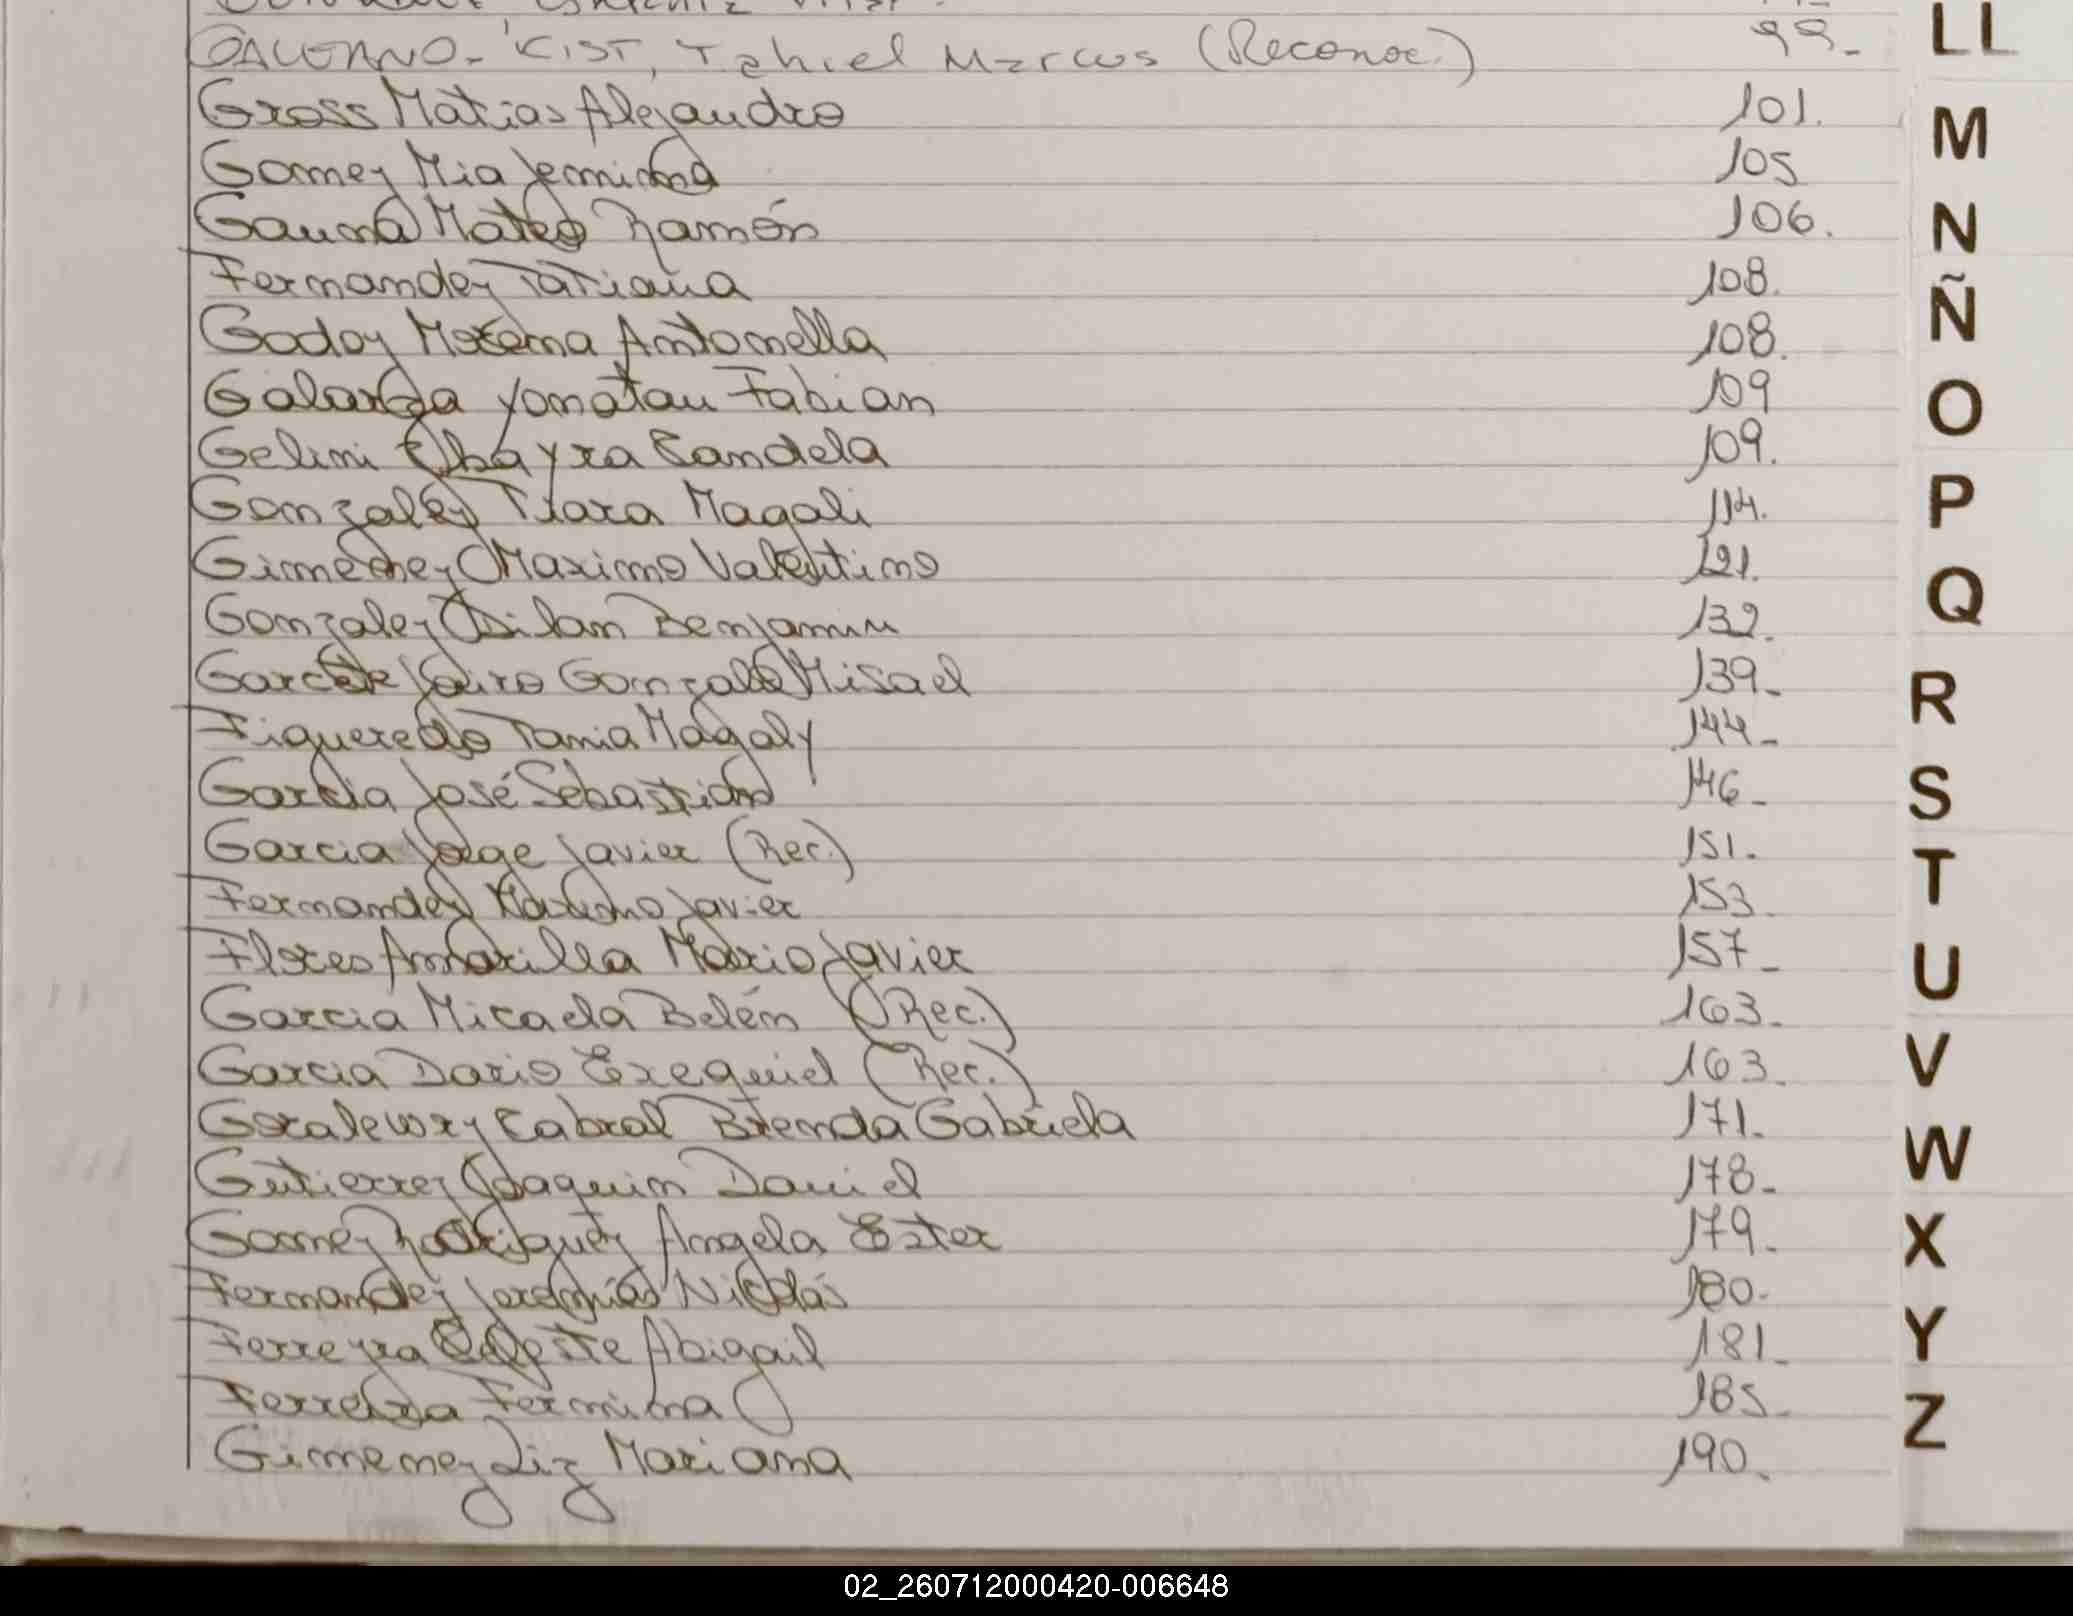 KIST, Tahiel Marcos (Reconoc.) 99-
Gross Matias Alejandro 101.
Gomez Mia Jemima 105
Gauna Mateo Ramón 106.
Fernandez Tatiana 108.
Godoy Morena Antonella 108.
Galarza Yonatan Fabian 109
Gelini Chayra Candela 109.
Gonzalez Tiara Magali 114.
Gimenez Maximo Valentino 121.
Gonzalez Dilan Benjamin 132.
Garcete Jairo Gonzalo Misael 139-
Figueredo Tania Magaly 144-
Garcia José Sebastian 146-
Garcia Jorge Javier (Rec.) 151.
Fernandez Maximo Javier 153.
Flores Amarilla Mario Javier 157-
Garcia Micaela Belén (Rec.) 163-
Garcia Dario Exequiel (Rec.) 163-
Cabral Brenda Gabriela 171.
Gutierrez Joaquin Daniel 178-
Gomez Rodriguez Angela Ester 179-
Fernandez Jeremías Nicolás 180-
Ferreyra Celeste Abigail 181-
Ferreira Fermina 185-
Gimenez Liz Mariana 190.
LL
M
N
Ñ
O
P
Q
R
S
T
U
V
W
X
Y
Z
02_260712000420-006648